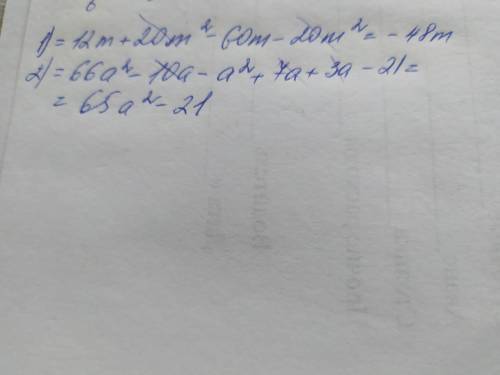 1) = 12m + 20m² - 60m - 20m² = - 48m
2) = 66a² - 10a - a² + 7a + 3a - 21 =
= 65a² - 21